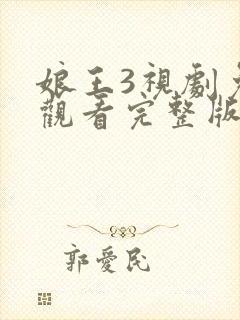 娘王3視劇免
觀看完整版
郭愛民